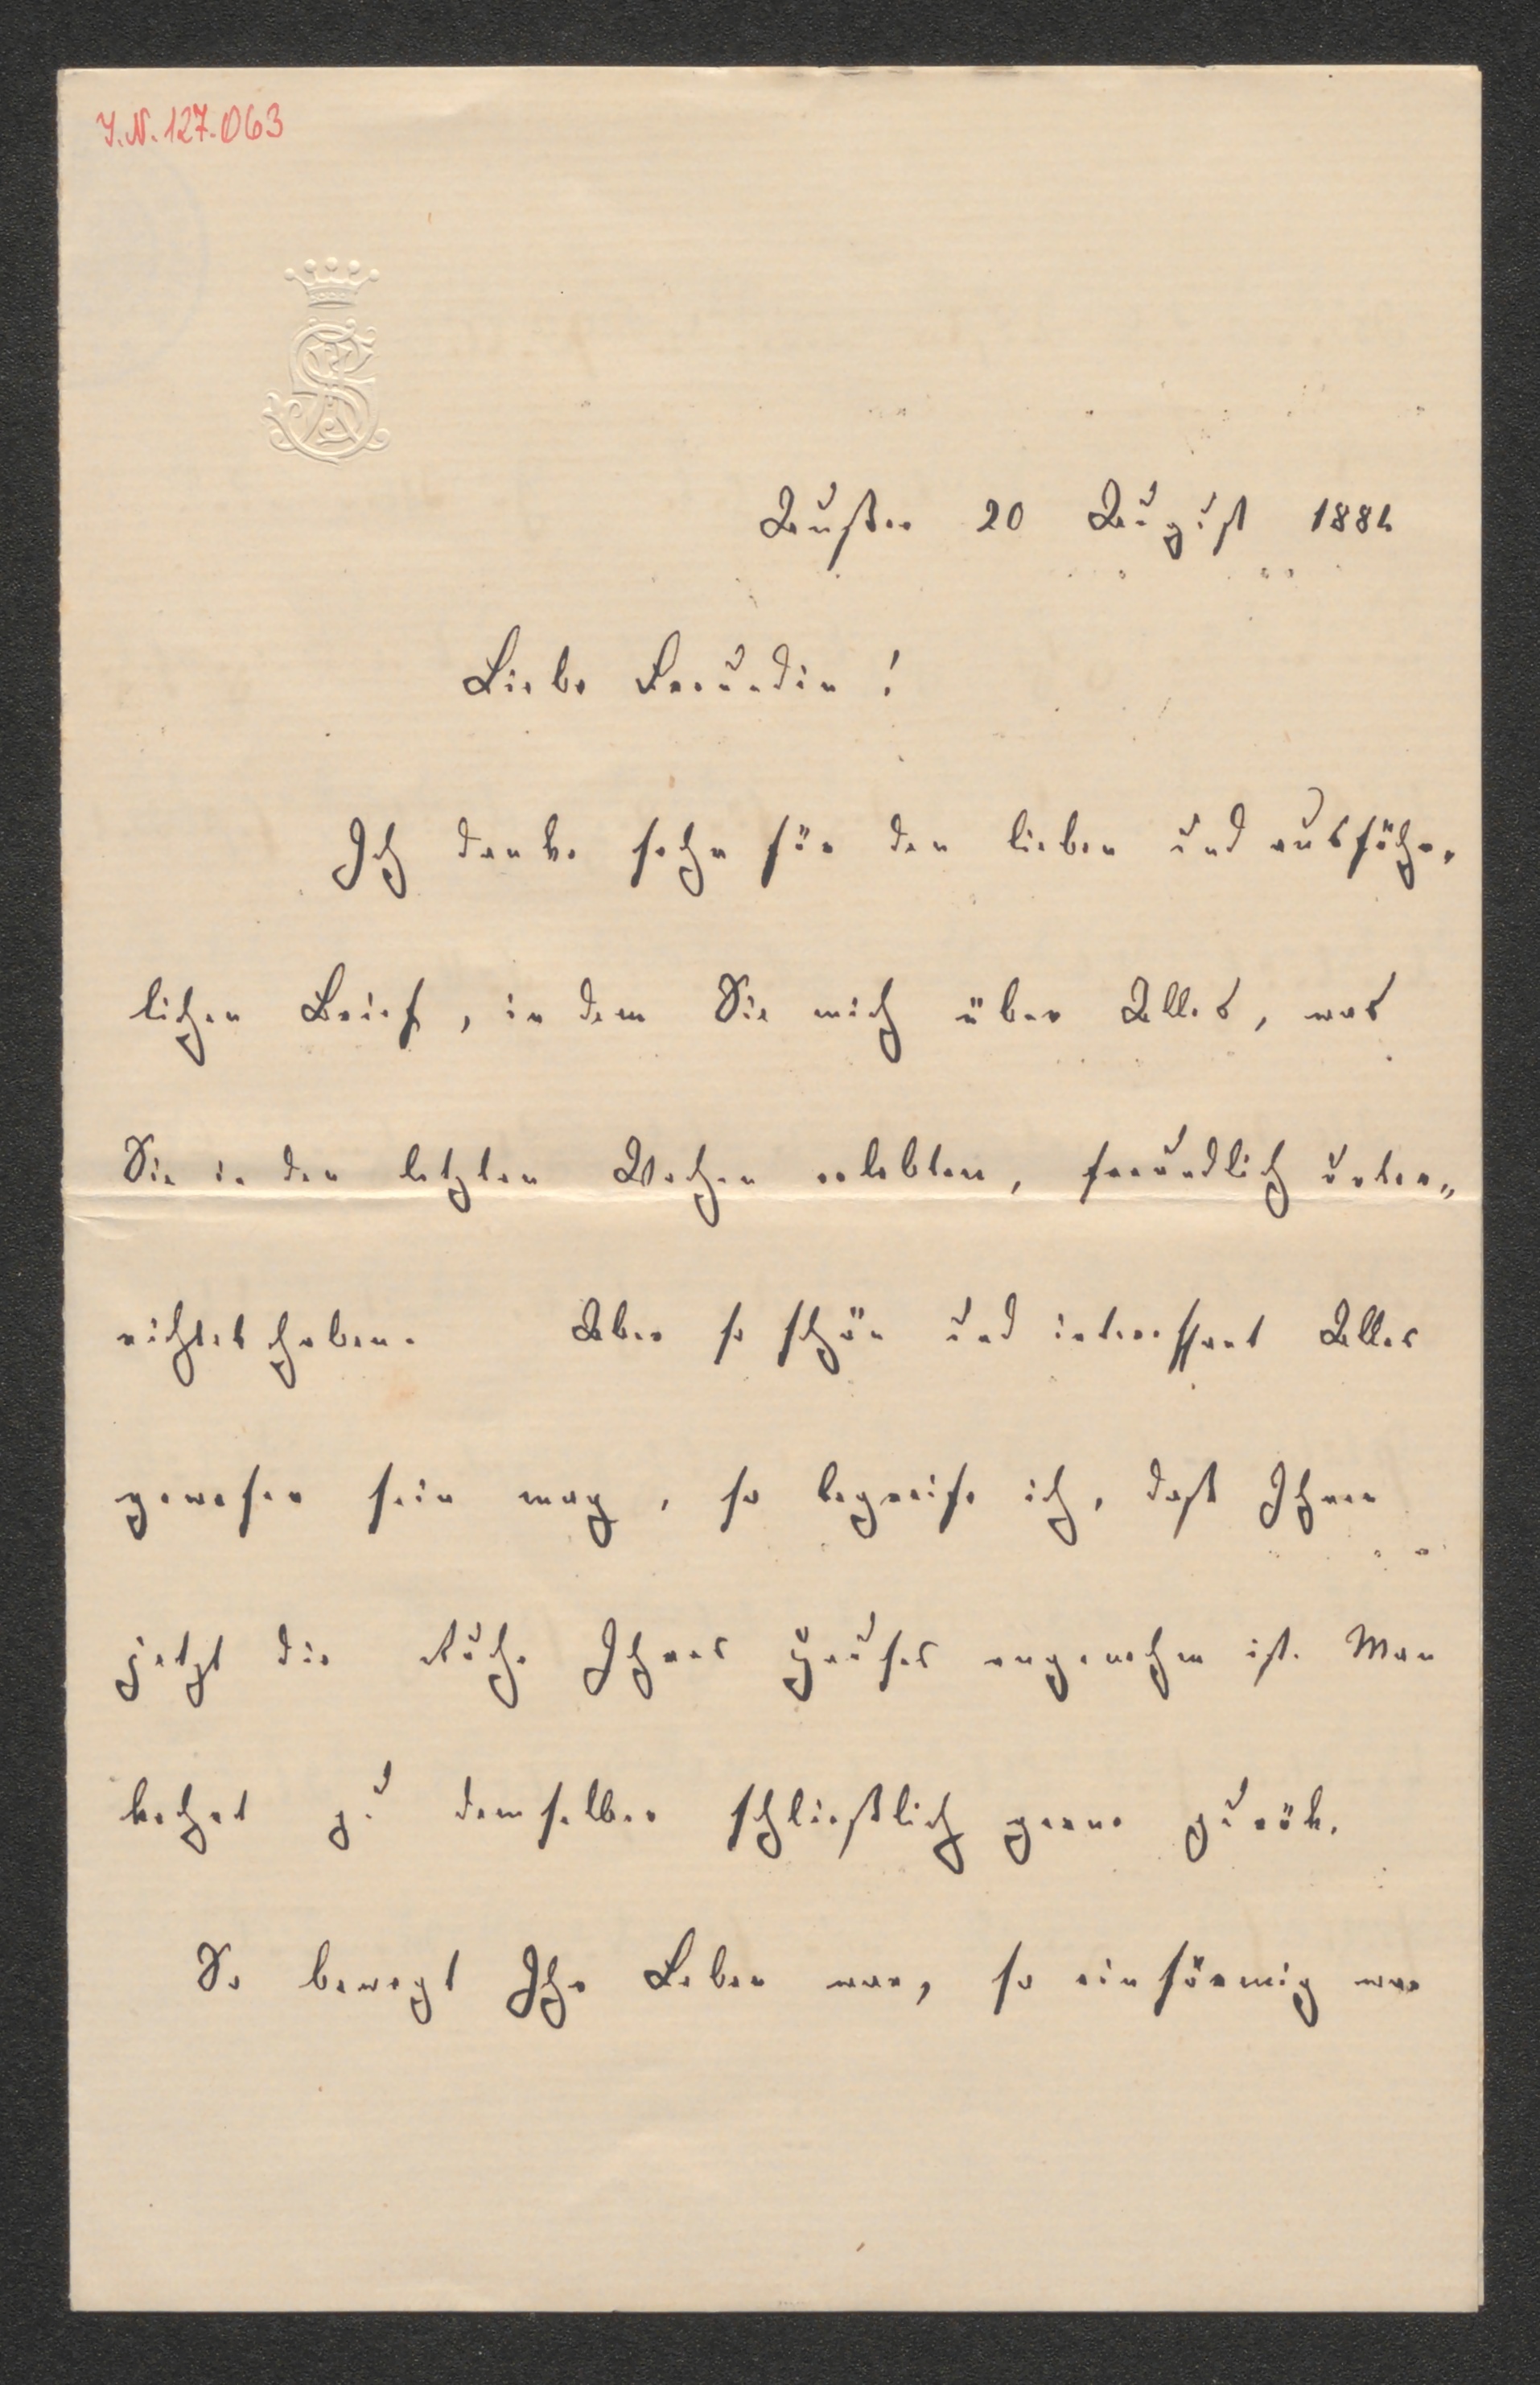 I.N. 127.063
Aussee 20 August 188
Liebe Freundin!
Ich danke sehr für den lieben und ausführ-
lichen Brief, in dem Sie mich über Alles, was
Sie in den letzten Wochen erlebten, freundlich unter„
richtet haben. Aber so schön und interessant Alles
gewesen sein mag, so begreife ich, daß Ihnen
jetzt die Ruhe Ihres Hauses angenehm ist. Man
kehrt zu demselben schließlich gerne zurük.
So bewegt Ihr Leben war, so einförmig war